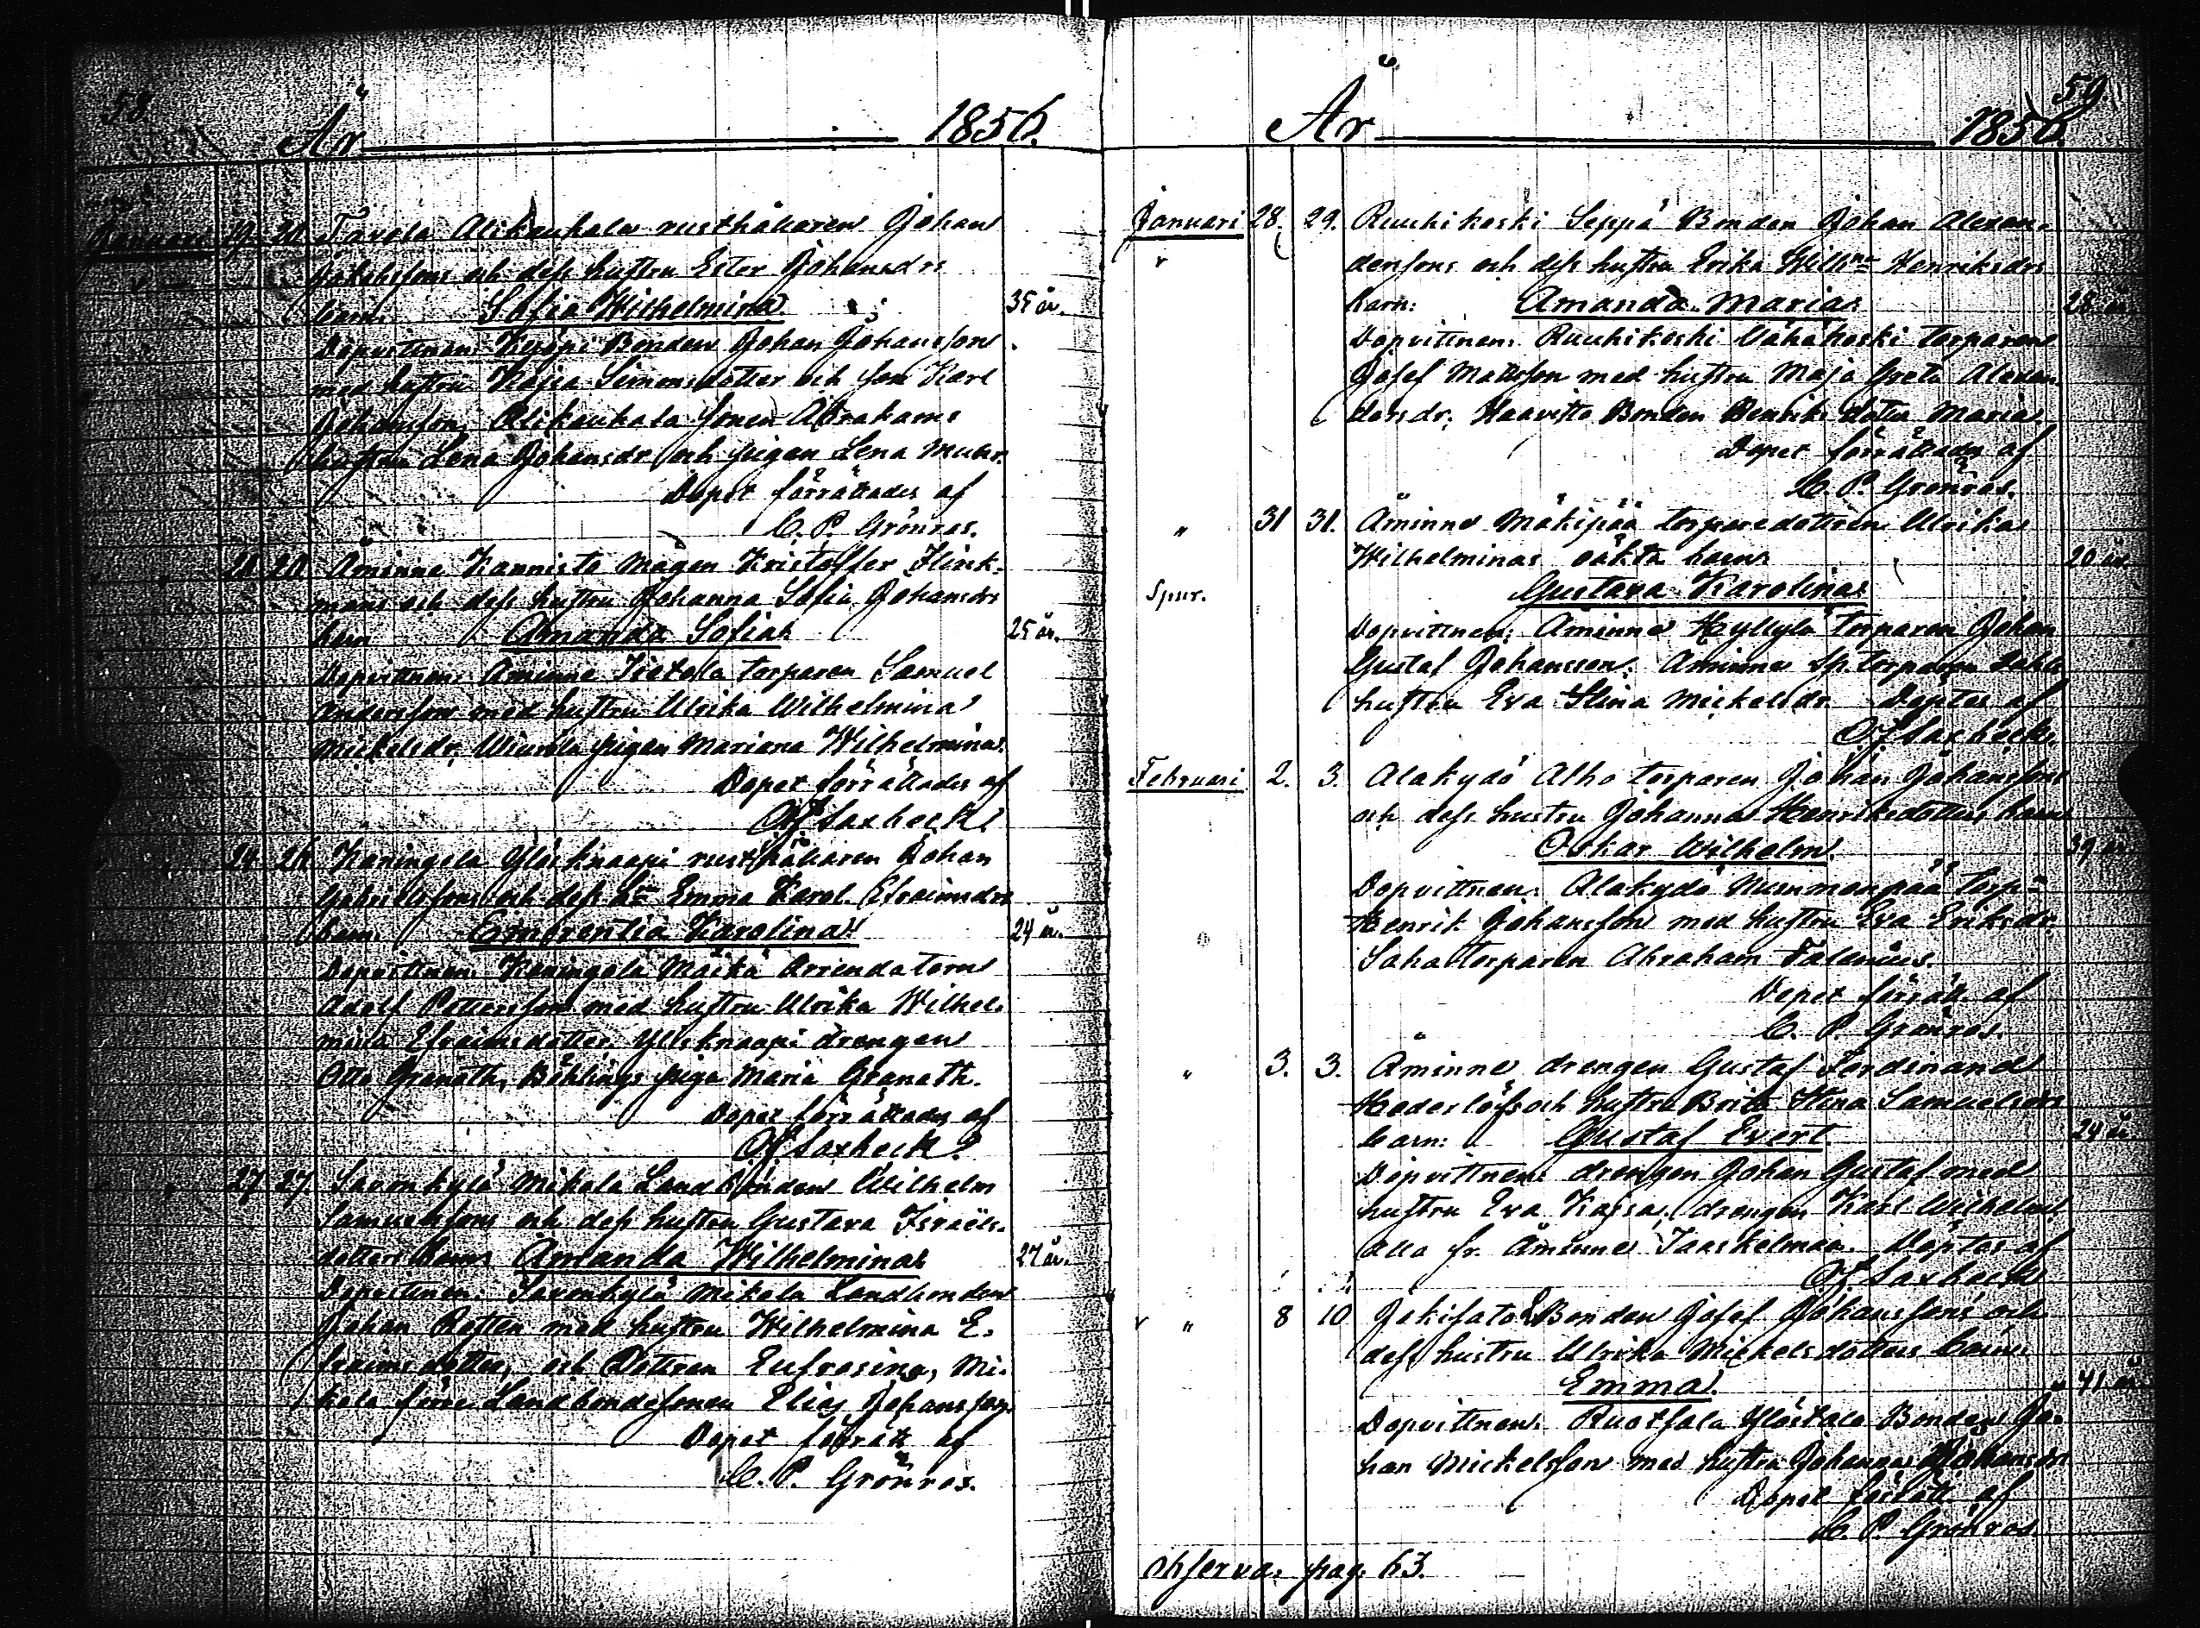 58.
År 1856.
Januari 19. 20. Tavola Alikaukala rusthållaren Johan
Jakobssons och dess hustru Ester Johansdrs
barn: Sofia Wilhelmina 35 år.
Dopvittnen: Bonden Johan Johansson
med hustru Kajsa Simonsdotter och son Karl
Johansson, Alikaukala sonen Abrahams
hustru Lena Johansdr och pigan Lena
Dopet förrättades af
C. P. Grönros.
20. Åminne Kannisto Mågen Kristoffer Flink-
mans och dess hustru Johanna Sofia Johansdrs
barn Amanda Sofia 25 år.
Dopvittnen: Åminne torparen Samuel
Andersson med hustru Ulrika Wilhelmina
Mickelsdr, pigan Mariana Wilhelmina.
Dopet förrättades af
Saxbeck
24. 26. Kaningola Ylösknaapi rusthållaren Johan
Gabrielssons och dess hu Emma Karol. Efraimsdrs
barn Emerentia Karolina 24 år.
Dopvittnen: Kaningola Arrendatorn
Adolf Pettersson med hustru Ulrika Wilhel-
mina Efraimsdotter, Ylösknaapi drengen
Otto Granath, piga Maria Granath.
Dopet förrättades af
Saxbeck
27. 27. Savonkylä Mikola Landbonden Wilhelm
Samuelssons och dess hustru Gustava Israels-
dotters barn Amanda Wilhelmina 27 år.
Dopvittnen: Savonkylä Mikola Landbonden
Johan med hustru Wilhelmina E-
fraimsdotter, och Dottren Eufrosina, Mi-
kola förre Landbondesonen Elias Johansson
Dopet förrätt af
C. P. Grönros.
59.
År 1856.
Januari 28. 29. Ruuhikoski Seppä Bonden Johan Alexan-
derssons och dess hustru Erika Wilh:na Henriksdrs
barn: Amanda Maria 28 år.
Dopvittnen: Ruuhikoski Vähäkoski torparen
Josef Mattsson med hustru Maja Greta Alexan-
dersdr; Haavisto Bonden Henriks dotter Maria.
Dopet förrättades af
C. P. Grönros.
" 31 31. Åminne Mäkipää torparedottren Ulrika
Wilhelminas oäkta barn 20 år
Spur. Gustava Karolina
Dopvittnen: Åminne Hyllylä torparen Johan
Gustaf Johansson. Åminne torparen
hustru Eva Stina Mickelsdr. Döptes af
Saxbeck.
Februari 2. 3. Alakydö Alho torparen Johan Johanssons
och dess hustru Johanna Henriksdotters barn
Oskar Wilhelm. 39 år
Dopvittnen: Alakydö Nummenpää Torp:n
Henrik Johansson med hustru Eva Eriksdr.
torparen Abraham Falenius.
Dopet förrätt. af
C. P. Grönros.
" 3. 3. Åminne drengen Gustaf Ferdinand
Hederlöfs och hustru Brita Stina Samuelsdrs
barn: Gustaf Evert 24 år
Dopvittnen: drengen Johan Gustaf med
hustru Eva Kajsa, drengen Karl Wilhelm
alla fr. Åminne. Döptes af
Saxbeck
" 8 10 Bonden Josef Johanssons och
dess hustru Ulrika Mickelsdotters barn
Emma. 41 år
Dopvittnen: Ruotsala Ylöstalo Bonden Jo-
han Mickelsson med hustru Johanna Johansdr
Dopet förrätt. af
C. P. Grönros.
observa: pag. 63.